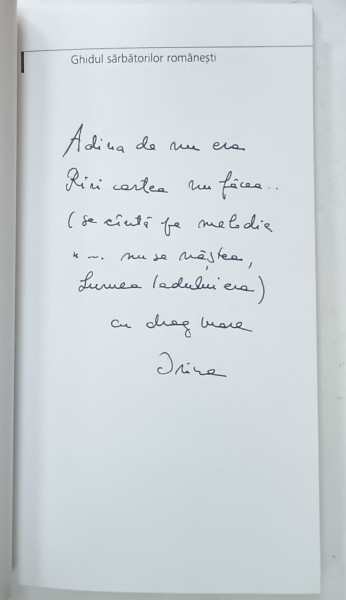 Ghidul sărbătorilor românești
Adina de nu era
Riri cartea nu făcea..
(se cîntă pe melodia
"~. nu se năștea,
Lumea Iadului era)
cu drag mare
Irina